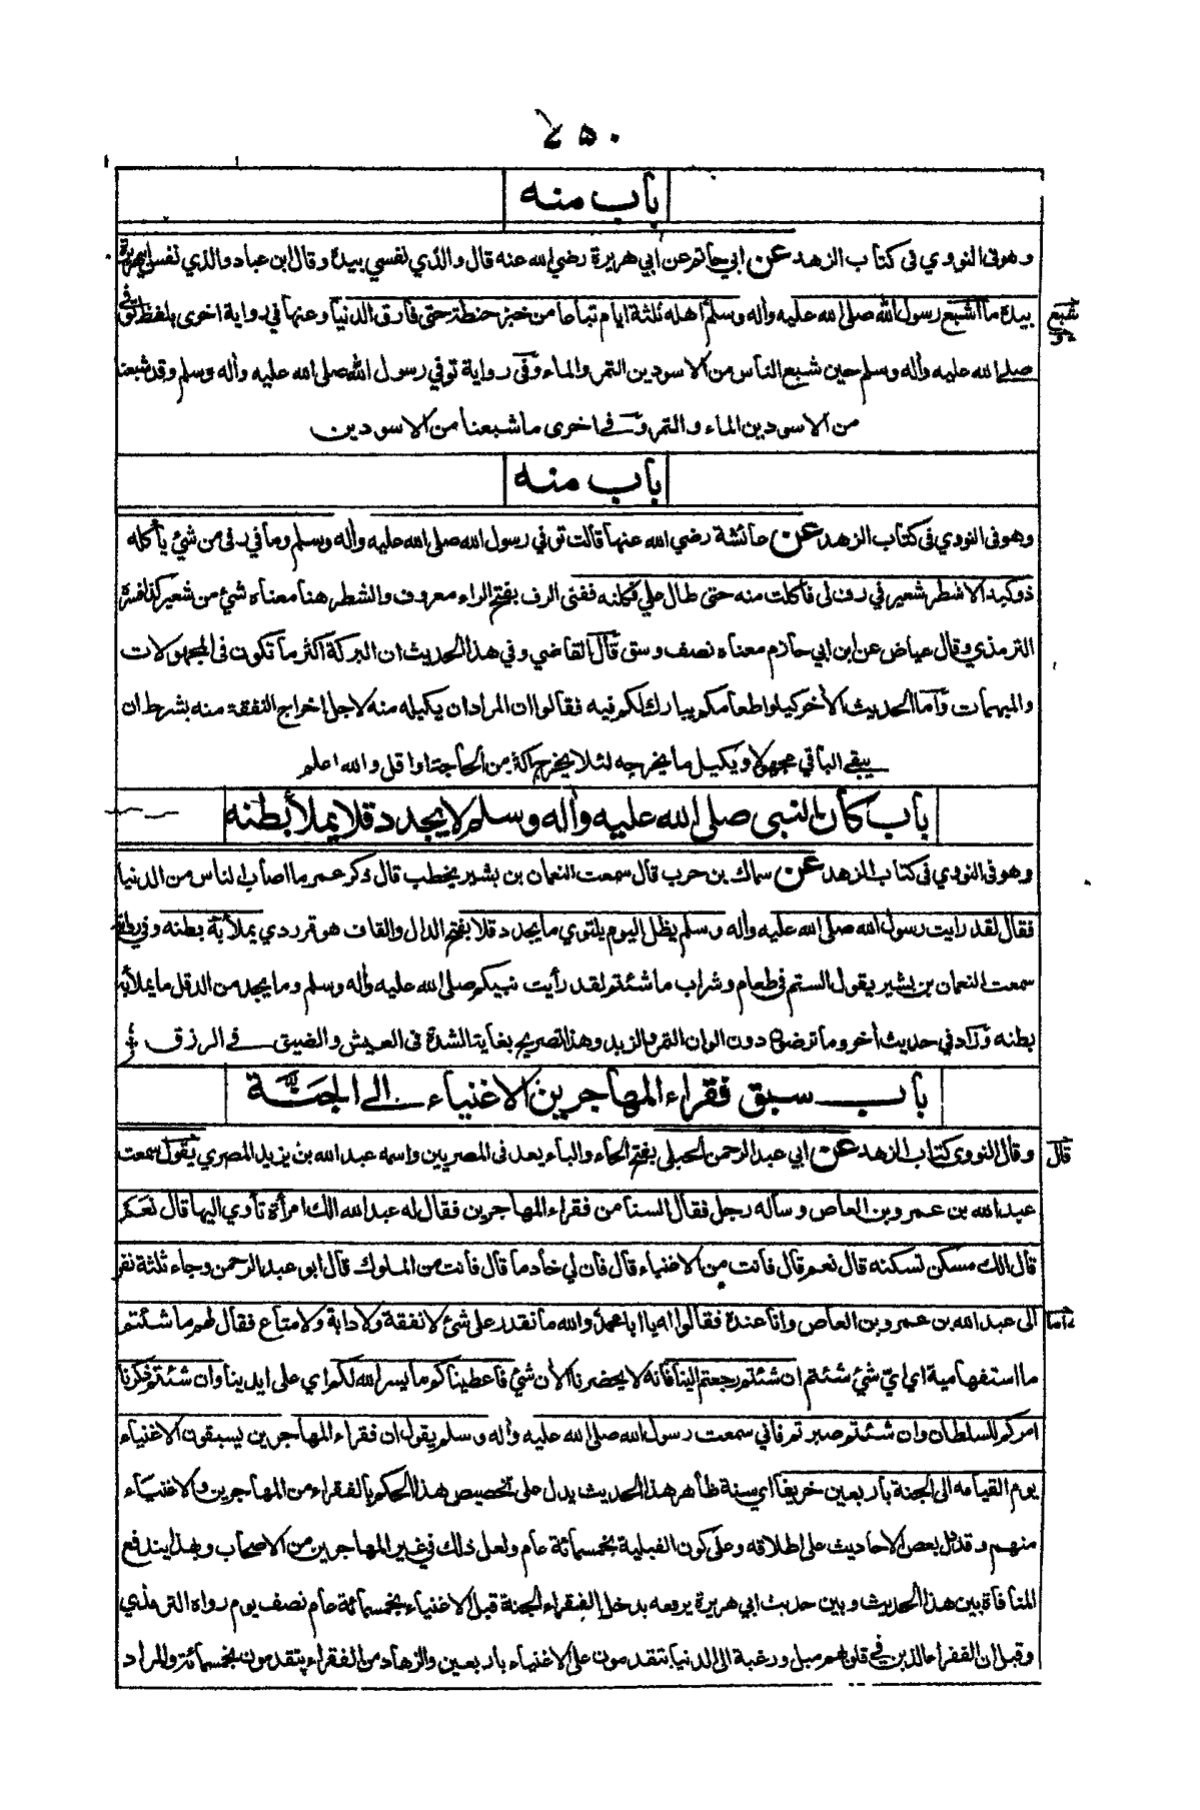 ٧٥٠
باب منه
وهو فى النووي فى كتاب الزهد عن ابي حازم عن ابي هريرة رضي الله عنه قال والذي نفسي بيده وقال ابن عباد والذي نفس ابي هريرة
بيده ما اشبع رسول الله صلى الله عليه وأله وسلم اهله ثلثة ايام تباعا من خبز حنطة حتى فارق الدنيا وعنها في رواية اخرى بلفظ توفي
شبع
صلى الله عليه وأله وسلم حين شبع الناس من الاسودين التمر والماء وفى رواية توفي رسول الله صلى الله عليه وأله وسلم وقد شبعنا
من الاسودين الماء والتمر وفي اخرى ما شبعنا من الاسودين
باب منه
وهو فى النووي فى كتاب الزهد عن عائشة رضي الله عنها قالت توفي رسول الله صلى الله عليه وأله وسلم وما في رفى من شئ يأكله
ذو كبد الا شطر شعير في رف لى فاكلت منه حتى طال علي فكلته ففنى الرف بفتح الراء معروف والشطر هنا معناه شئ من شعير كذا فسره
الترمذي وقال عياض عن ابن ابي حازم معناه نصف وسق قال القاضي وفي هذا الحديث ان البركة اكثر ما تكون فى المجهولات
والمبهمات وأما الحديث الأخر كيلوا طعامكم يبارك لكم فيه فقالوا ان المراد ان يكيله منه لاجل اخراج النفقة منه بشرط ان
يبقى الباقي مجهولا ويكيل ما يخرجه لئلا يخرج اكثر من الحاجة او اقل والله اعلم
باب كان النبي صلى الله عليه وأله وسلم لا يجد دقلا يملأ بطنه
وهو فى النووي فى كتاب الزهد عن سماك بن حرب قال سمعت النعمان بن بشير يخطب قال ذكر عمر ما اصاب الناس من الدنيا
فقال لقد رايت رسول الله صلى الله عليه وأله وسلم يظل اليوم يلتوي ما يجد دقلا بفتح الدال والقاف هو تمر ردي يملأ به بطنه وفي رواية
سمعت النعمان بن بشير يقول الستم فى طعام وشراب ما شئتم لقد رأيت نبيكم صلى الله عليه وأله وسلم وما يجد من الدقل ما يملأ به
بطنه وزاد في حديث أخر وما ترضون دون الوان التمر والزبد وهذا تصريح بغاية الشدة فى العيش والضيق في الرزق
باب سبق فقراء المهاجرين الاغنياء الى الجنة
وقال النووي كتاب الزهد عن ابي عبد الرحمن الحبلي بفتح الحاء والباء يعد فى المصريين واسمه عبد الله بن يزيد المصري يقول سمعت
قال
عبد الله بن عمرو بن العاص وسأله رجل فقال السنا من فقراء المهاجرين فقال له عبد الله الك امرأة تأوي اليها قال نعم
قال الك مسكن تسكنه قال نعم قال فانت من الاغنياء قال فان لي خادما قال فانت من الملوك قال ابو عبد الرحمن وجاء ثلثة نفر
الى عبد الله بن عمرو بن العاص وانا عنده فقالوا له يا ابا محمد والله ما نقدر على شئ لا نفقة ولا دابة ولا متاع فقال لهم ما شئتم
ما استفهامية اي اي شئ شئتم ان شئتم رجعتم الينا فانه لا يحضرنا الأن شئ فاعطيناكم ما يسر الله لكم اي على ايدينا وان شئتم ذكرنا
امركم للسلطان وان شئتم صبرتم فاني سمعت رسول الله صلى الله عليه وأله وسلم يقول ان فقراء المهاجرين يسبقون الاغنياء
يوم القيامه الى الجنة باربعين خريفا اي سنة ظاهر هذا الحديث يدل على تخصيص هذا الحكم بالفقراء من المهاجرين والاغنياء
منهم وقد دل بعض الاحاديث على اطلاقه وعلى كون القبلية بخمسمائة عام ولعل ذلك في غير المهاجرين من الاصحاب وبهذا يندفع
المنافاة بين هذا الحديث وبين حديث ابي هريرة يرفعه يدخل الفقراء الجنة قبل الاغنياء بخمسمائة عام نصف يوم رواه الترمذي
وقيل ان الفقراء الذين في قلوبهم ميل ورغبة الى الدنيا يتقدمون على الاغنياء باربعين والزهاد من الفقراء يتقدمون بخمسمائة والمراد